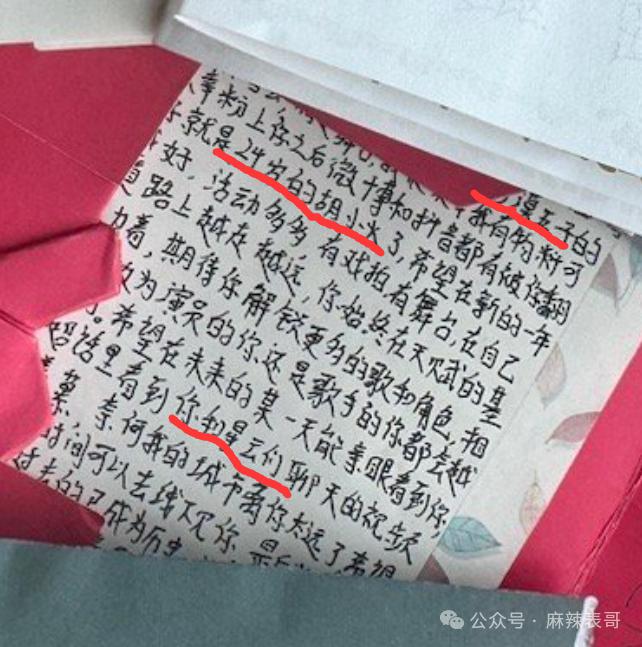 幸粉上你之后微博和抖音都有被你翻
就是24岁的胡小火了,希望在新的一年
好,活动多多有戏拍有舞台,在自己
道路上越走越远,你始终在天赋的基
力着,期待你解锁更多的歌和角色,相
为演员的你还是歌手的你都会越
希望在未来的某一天能亲眼看到你,
超话里看到你和星云们聊天的视频
慕,奈何我的城市离你太远了希望
时间可以去线下见你
过去的已成为历史
我有物料可
的
公众号·麻辣表哥